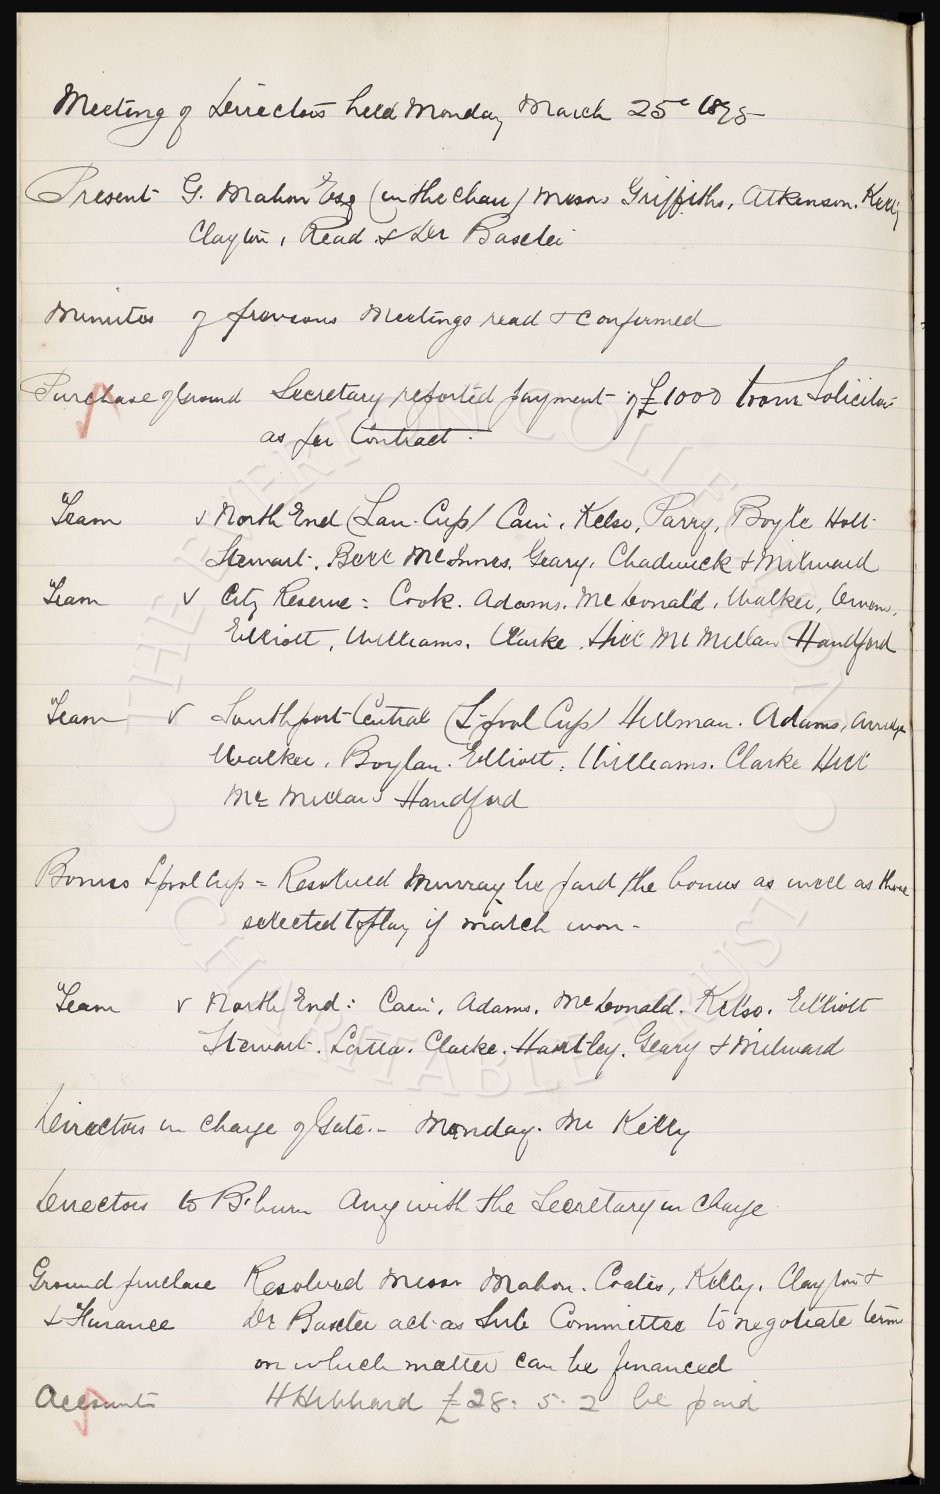 Meeting of Directors held Monday March 25th 1895
Present G. Mahon Esq (in the chair) Messrs Griffiths, Atkinson, Kelly
Clayton, Read & Dr Baxter
Minutes of previous Meetings read & confirmed
Purchase of Ground Secretary reported payment of £1000 to our Solicitors
as per Contract.
Team v North End (Lan. Cup) Cain, Kelso, Parry, Boyle Holt
Stewart. Bell McInnes. Geary, Chadwick & Milward
Team v City Reserve: Cook. Adams. McDonald, Walker,
Elliott, Williams. Clarke. Hill McMillan Handford
Team v Southport Central (L-pool Cup) Hillman. Adams, Arridge
Walker, Boylan. Elliott. Williams. Clarke Hill
Mc Millan & Handford
Bonus L'pool Cup = Resolved Murray be paid the bonus as well as those
selected to play if match won -
Team v North End: Cain, Adams. McDonald. Kelso. Elliott
Stewart. Latta. Clarke. Hartley. Geary & Milward
Directors in charge of Gate. - Monday. Mr Kelly
Directors to B'burn Any with the Secretary in charge
Ground purchase Resolved Messrs Mahon. Coates, Kelly, Clayton &
& Finance Dr Baxter act as Sub Committee to negotiate terms
on which matter can be financed
Accounts H Hibbard £28: 5. 2 be paid
THE EVERTON COLLECTION
CHARITABLE TRUST